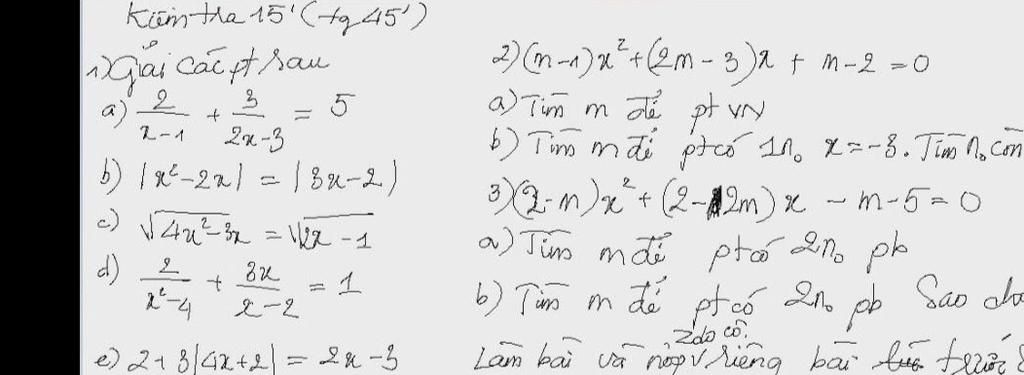 Kiểm tra 15' (tg 45')
1) Giải các pt sau
a) 2/(x-1) + 3/(2x-3) = 5
b) |x²-2x| = |3x-2|
c) √(4x²-3x) = √(2x-1)
d) 2/(x²-4) + 3x/(x-2) = 1
e) 2+3|4x+2| = 2x-3
2) (m-1)x²+(2m-3)x + m-2 = 0
a) Tìm m để pt VN
b) Tìm m để pt có 1n₀ x=-3. Tìm n₀ còn
3) (2-m)x²+(2-2m)x - m-5 = 0
a) Tìm m để pt có 2n₀ pb
b) Tìm m để pt có 2n₀ pb Sao cho
Zalo cô.
Làm bài và nộp v riêng bài trước